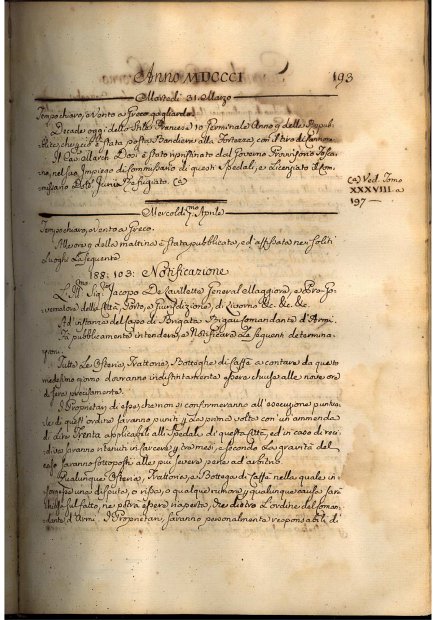 Anno MDCCCI
193
Martedì 31. Marzo
Tempo chiaro, e Vento a Greco gagliardo.
Decade oggi dello Stile Francese 10 Germinale Anno 9 della Repub-
blica, che perciò è stata posta Bandiera alla Fortezza, con il tiro di Cannone.
Il Cav. March. Dosi è stato ripristinato dal Governo Provvisorio Tosca-
no, nel suo Impiego di Commissario di questi Spedali, e Licenziato il Com-
missario Dott. Refugiati. (a)
(a) Ved. Tomo
XXXVIII. a
197 —
Mercoldì p.mo Aprile
Tempo chiaro, e Vento a Greco.
Alle ore 9 della mattina è stata pubblicata, ed affissata nei soliti
Luoghi la seguente
188: 103: Notificazione
L'Ill.mo Sig.re Jacopo De Lavillette General Maggiore, e Pro-Go-
vernatore della Città, Porto, e Giurisdizione, di Livorno &c. &c. &c.
Ad instanza del Capo di Brigata Comandante d'Armi.
Fa pubblicamente intendere, e Notificare Le seguenti determina-
zioni.
Tutte Le Osterie, Trattorie, Botteghe di Caffè a contare da questo
medesimo giorno dovranno indistintamente essere chiuse alle nove ore
di sera precisamente.
I Proprietari di esse, che non si conformeranno all'esecuzione puntua-
le di quest'ordine saranno puniti Per La prima volta con un ammenda
di Lire Trenta applicabili alli Spedali di questa Città, ed in caso di reci-
diva saranno ritenuti in Carcere per tre mesi, e secondo La gravità del
caso saranno sottoposti alle più severe pene ad arbitrio.
Qualunque Osteria, Trattoria, e Bottega di Caffè nella quale in-
sorgesse una disputa, o rissa, o qualque rumore per qualunque causa sarà
chiusa sul fatto, ne potrà essere riaperta, che dietro L'ordine del Coman-
dante d'Armi. I Proprietari saranno personalmente responsabili di